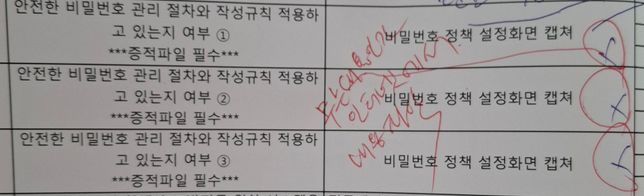 안전한 비밀번호 관리 절차와 작성규칙 적용하
고 있는지 여부 ①
***증적파일 필수***
비밀번호 정책 설정화면 캡쳐
안전한 비밀번호 관리 절차와 작성규칙 적용하
고 있는지 여부 ②
***증적파일 필수***
비밀번호 정책 설정화면 캡쳐
안전한 비밀번호 관리 절차와 작성규칙 적용하
고 있는지 여부 ③
***증적파일 필수***
비밀번호 정책 설정화면 캡쳐